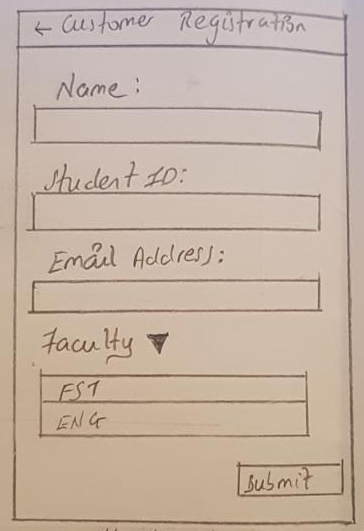 ← Customer Registration
Name:
Student ID:
Email Address:
Faculty ▼
FST
ENG
Submit